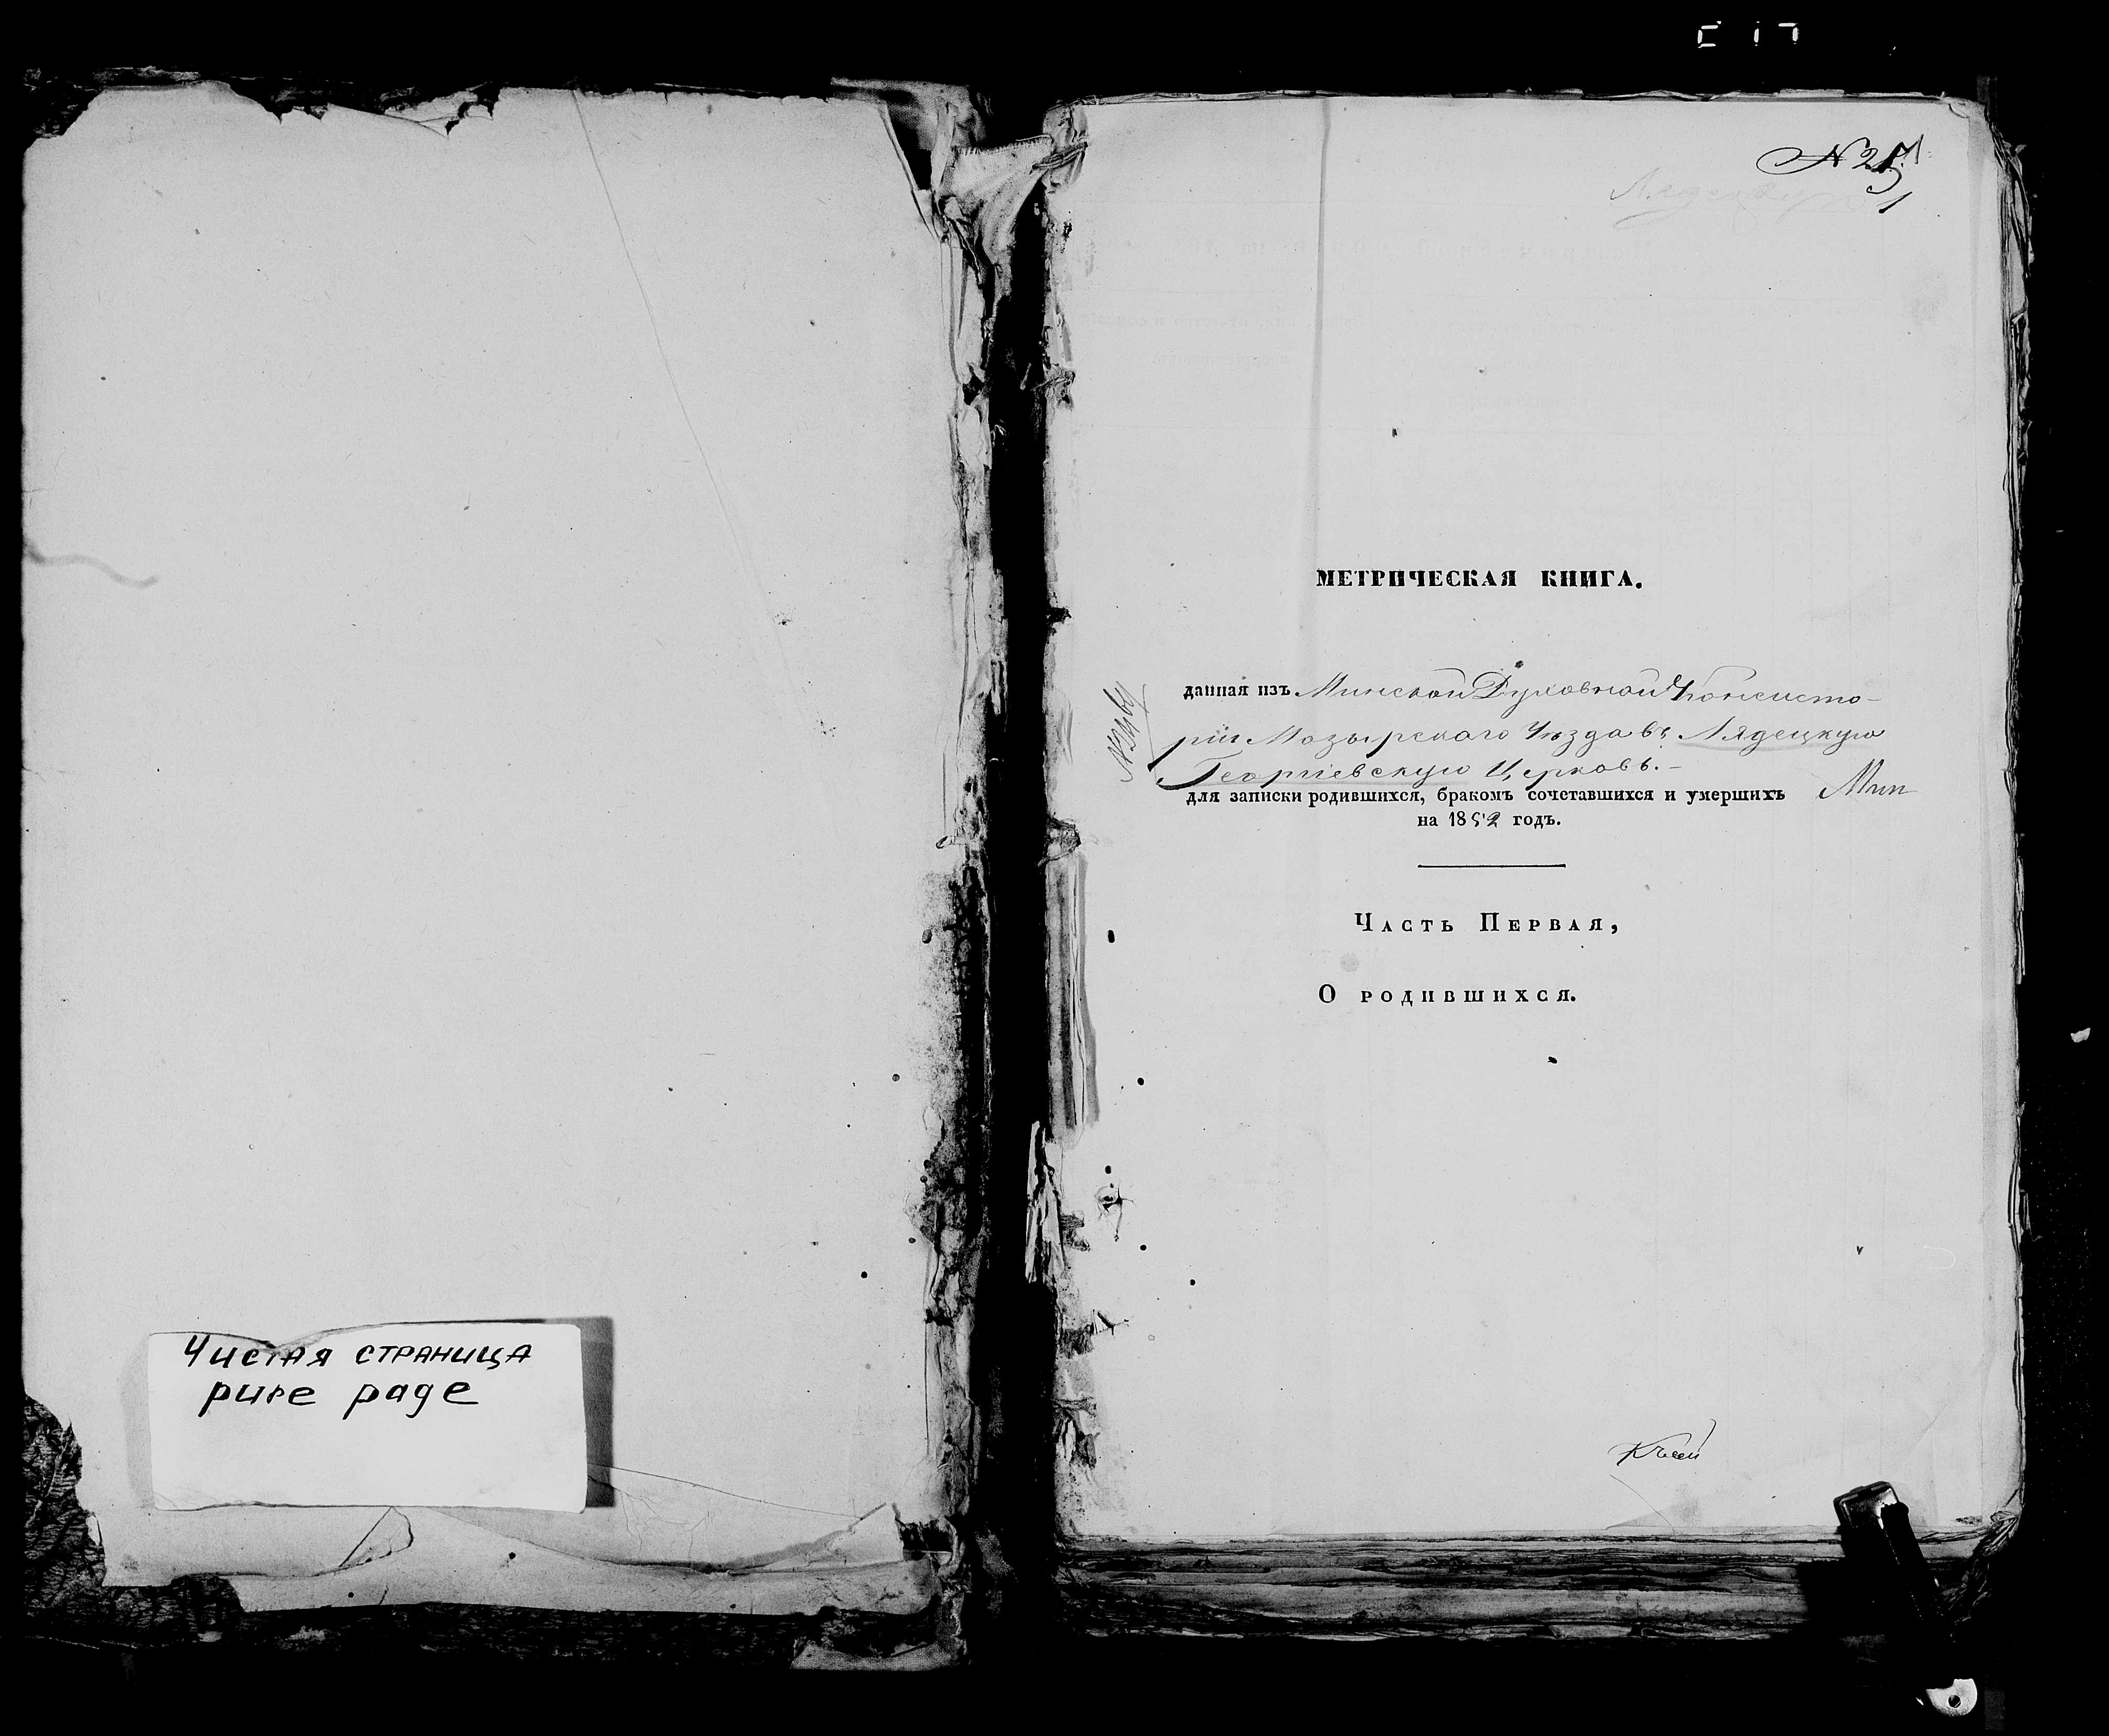 Чистая страница
pure page
МЕТРИЧЕСКАЯ КНИГА.
данная изъ Минской Духовной Консисто-
ріи Мозырскаго Уѣзда въ Лядецкую
Георгіевскую Церковь.-
для записки родившихся, бракомъ сочетавшихся и умершихъ
на 1852 годъ.
Часть Первая,
О родившихся.